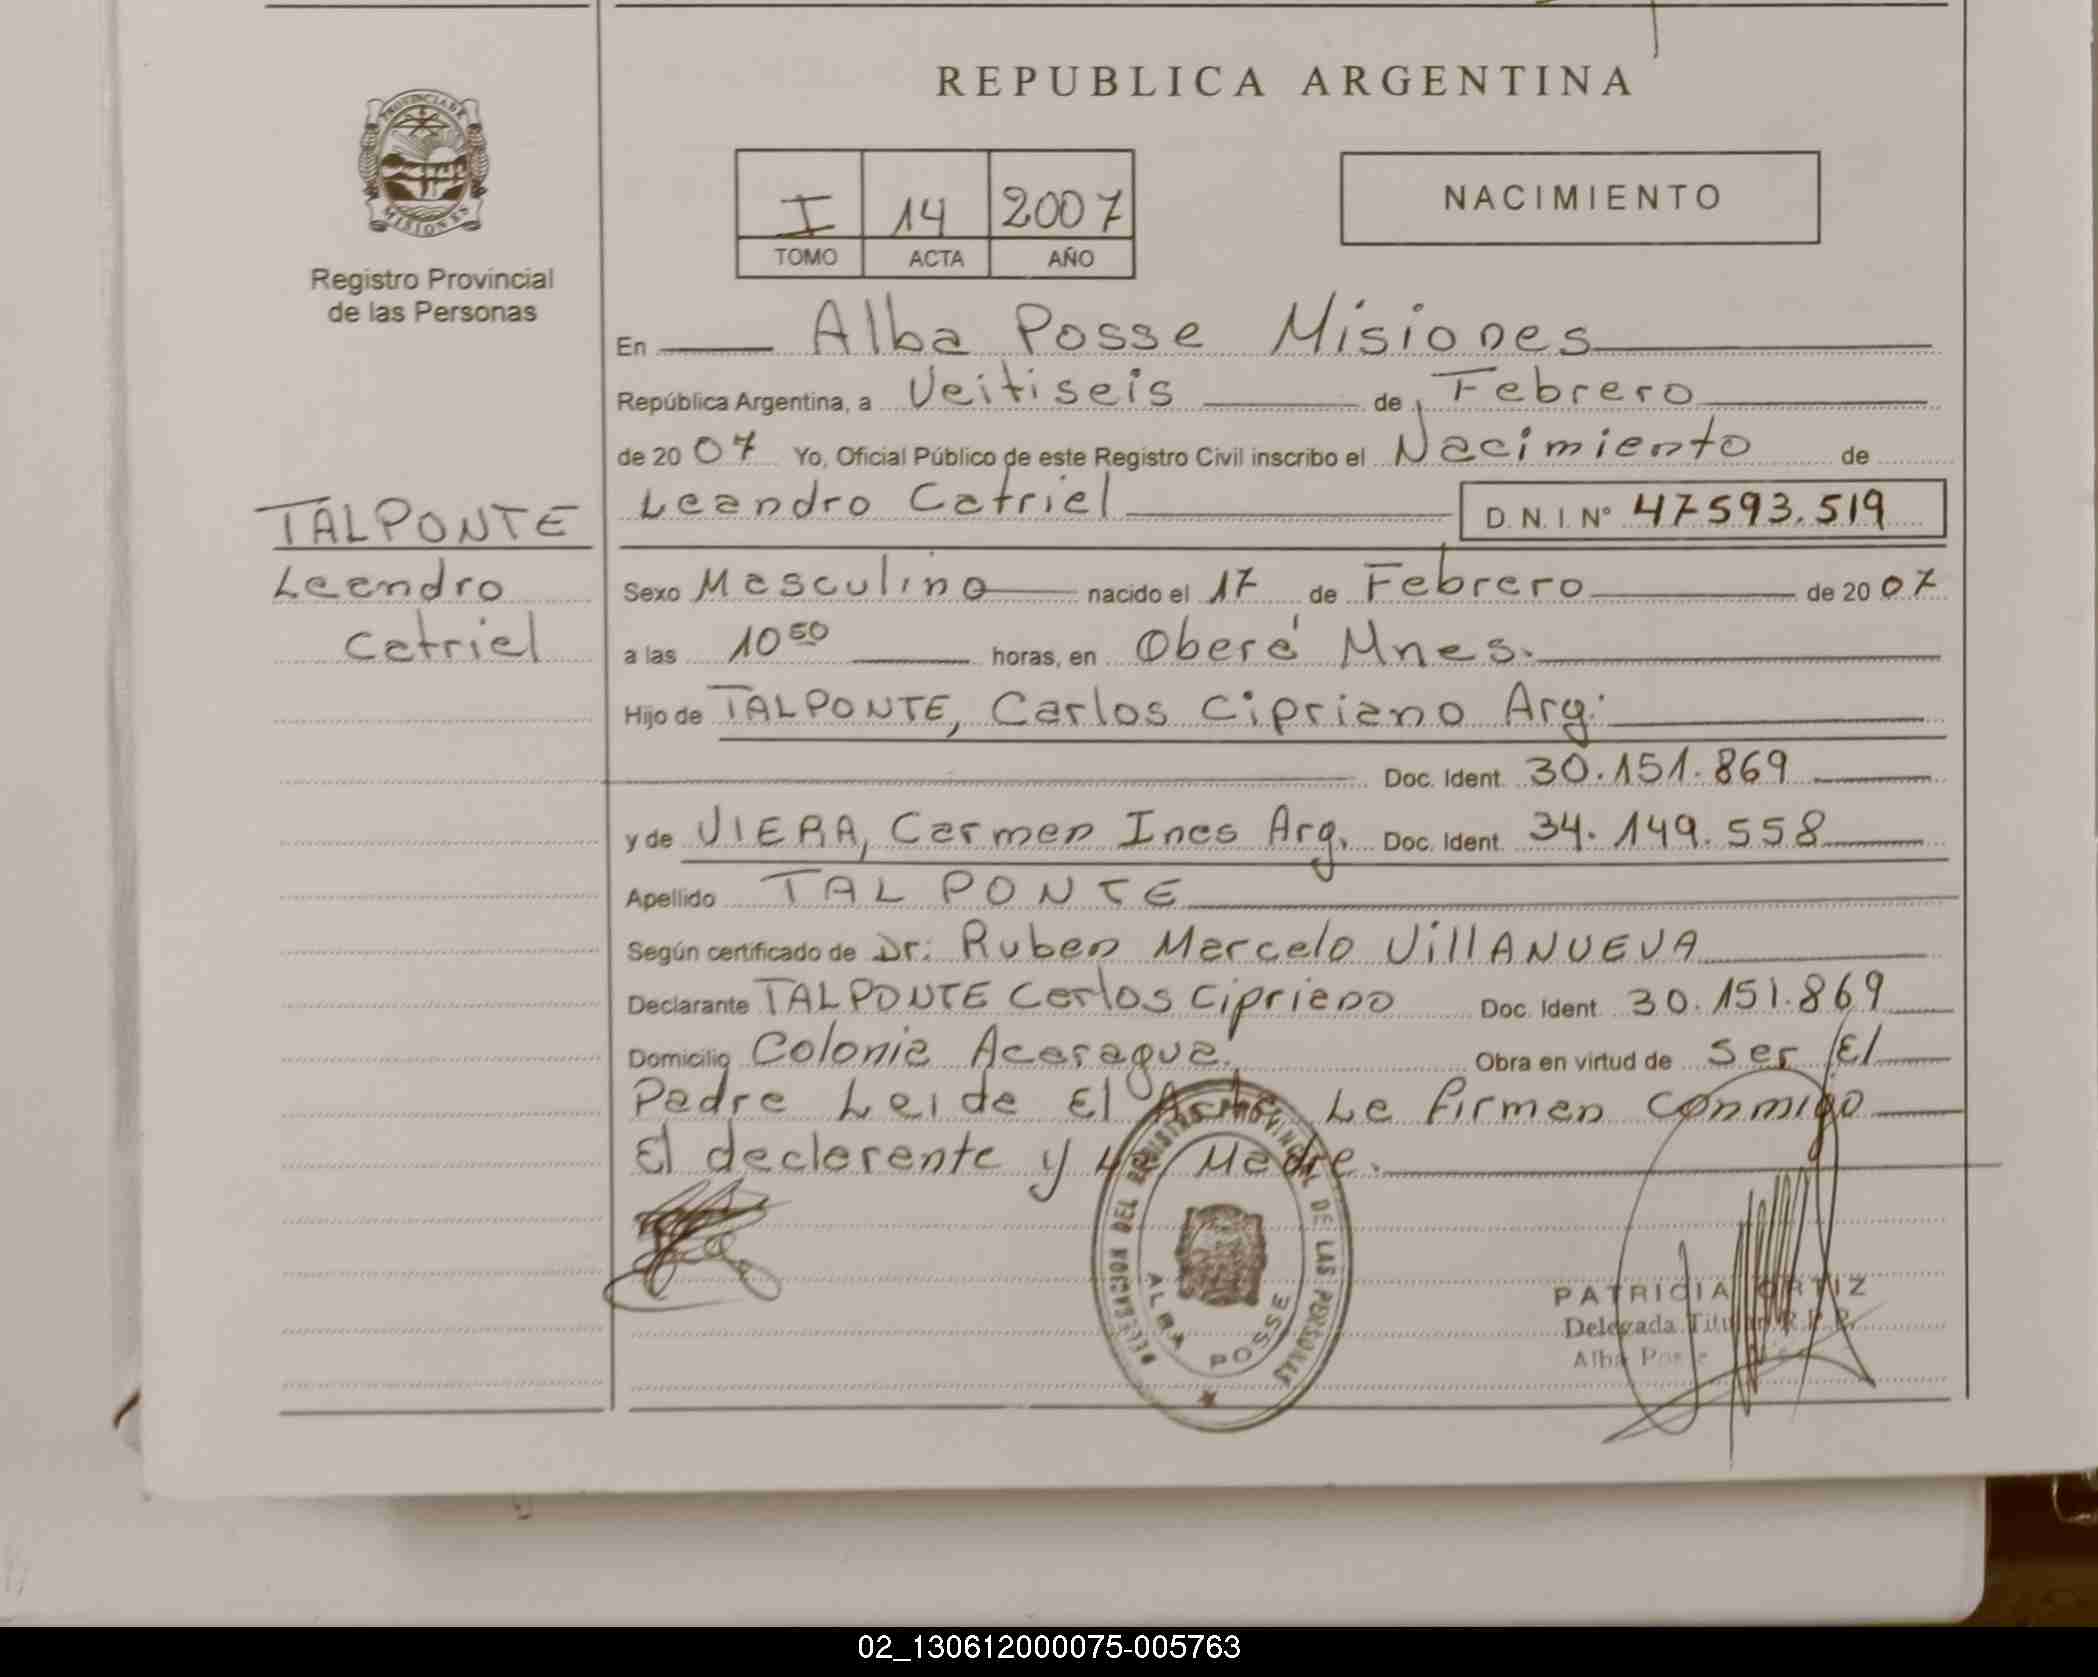 REPUBLICA ARGENTINA
PROVINCIA DE
MISIONES
Registro Provincial
de las Personas
I 14 2007
TOMO ACTA AÑO
NACIMIENTO
En Alba Posse Misiones
República Argentina, a Veitiseis de Febrero
de 2007 Yo, Oficial Público de este Registro Civil inscribo el Nacimiento de
Leandro Catriel D.N.I. Nº 47593.519
TALPONTE
Leandro
Catriel
Sexo Masculino nacido el 17 de Febrero de 2007
a las 10 50 horas, en Oberá Mnes.
Hijo de TALPONTE, Carlos Cipriano Arg.
Doc. Ident. 30.151.869
y de VIERA, Carmen Ines Arg. Doc. Ident. 34.149.558
Apellido TALPONTE
Según certificado de Dr. Ruben Marcelo VillANUEVA
Declarante TALPONTE Carlos Cipriano Doc. Ident. 30.151.869
Domicilio Colonia Acaragua. Obra en virtud de Ser El
Padre Leida El Acta, La firman conmigo
El declarante y la Madre.
DELEGACION DEL REGISTRO PROVINCIAL DE LAS PERSONAS
ALBA POSSE
PATRICIA ORTIZ
Delegada Titular R.P.P.
Alba Posse
02_130612000075-005763